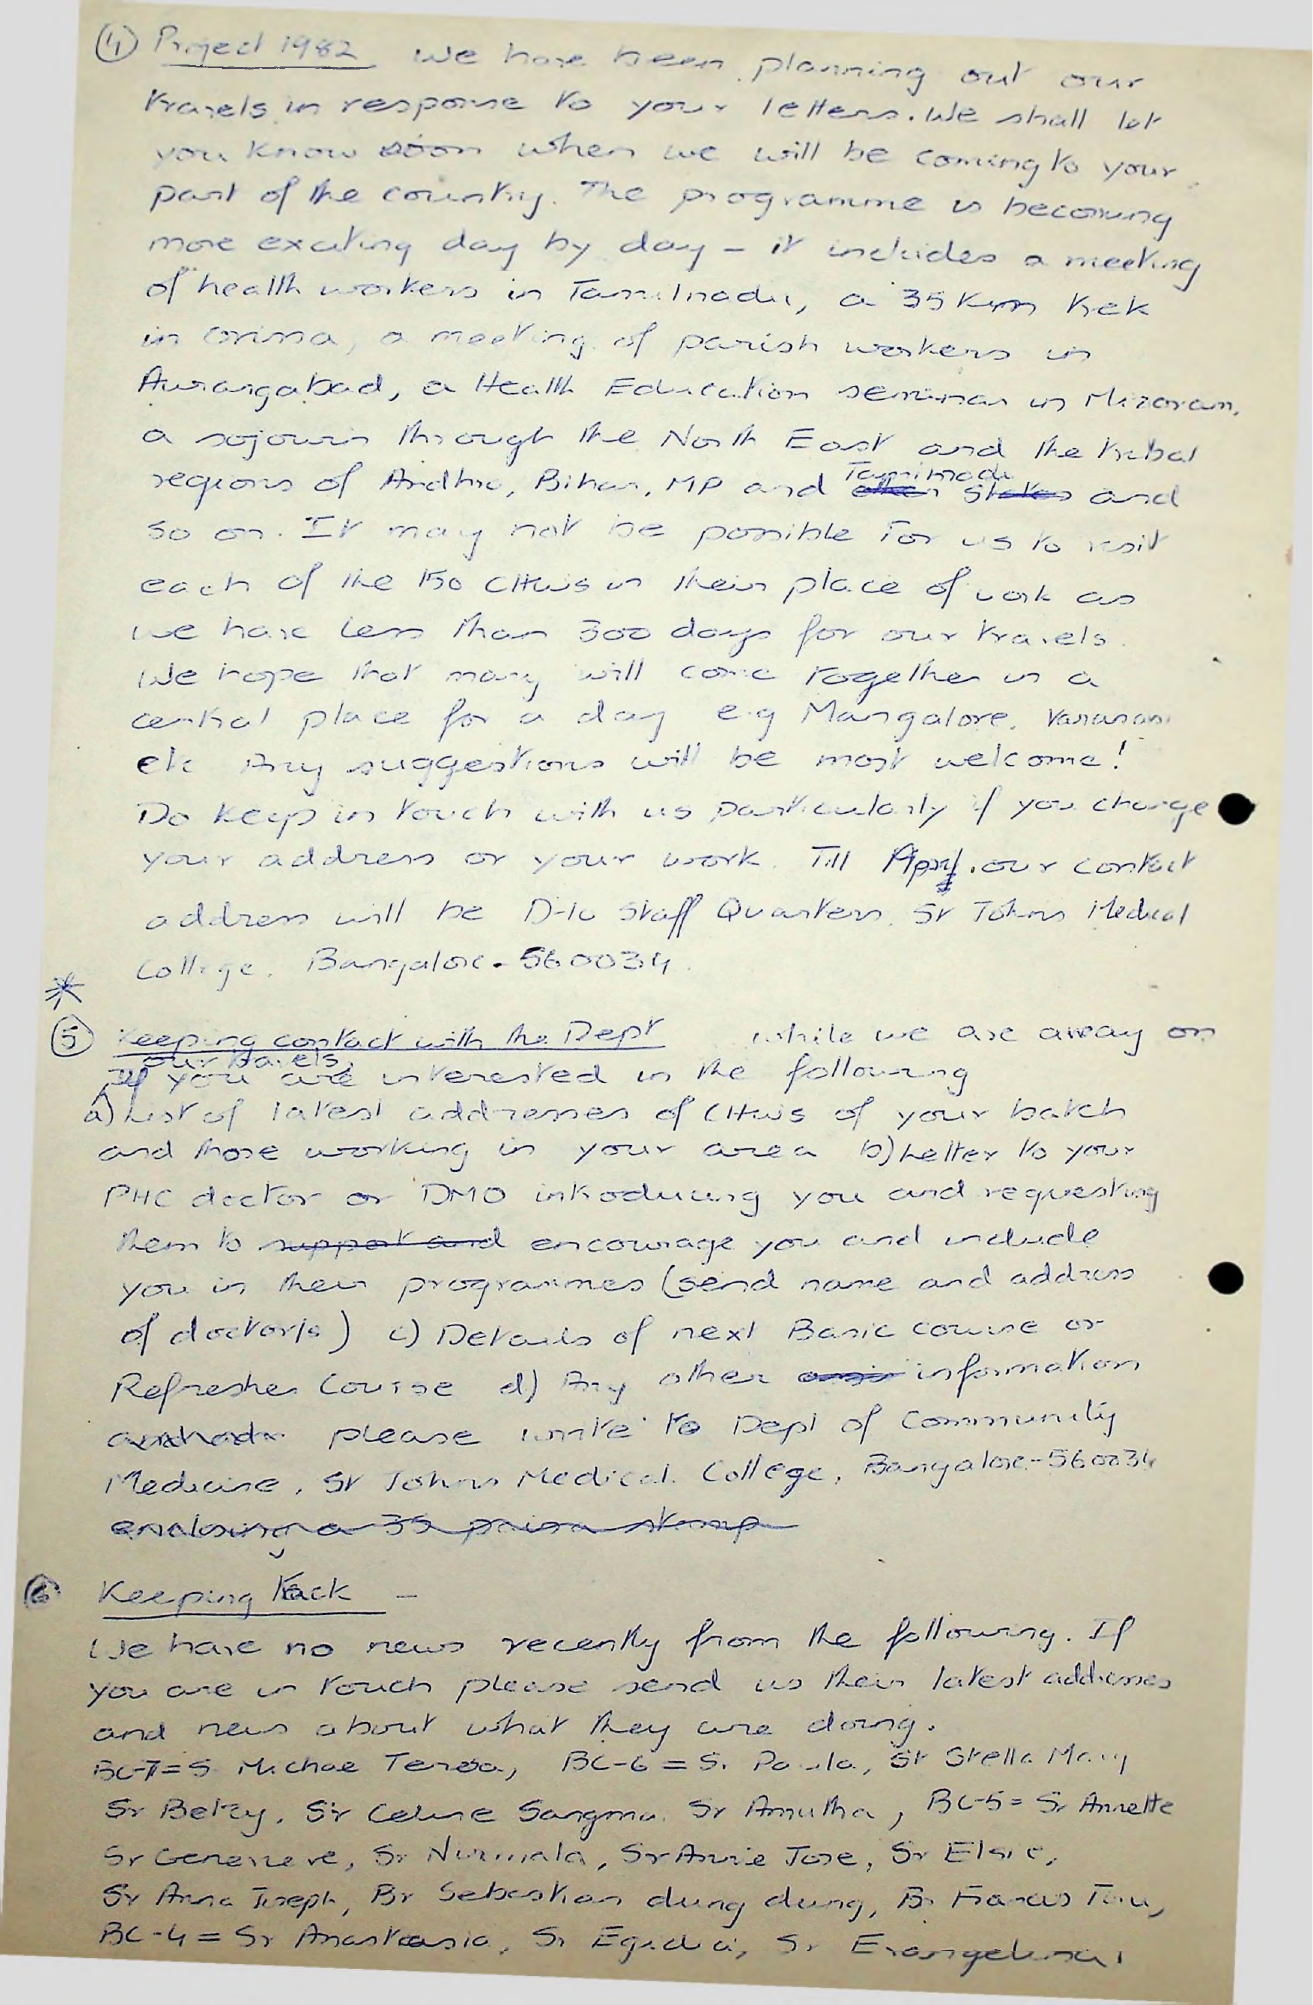 ④ Project 1982 We have been planning out our
travels in response to your letters. We shall let
you know soon when we will be coming to your
part of the country. The programme is becoming
more exciting day by day - it includes a meeting
of health workers in Tamilnadu, a 35 km trek
in Orissa, a meeting of parish workers in
Aurangabad, a Health Education seminar in Mizoram,
a sojourn through the North East and the tribal
Tamilnadu
regions of Andhra, Bihar, MP and other states and
so on. It may not be possible for us to visit
each of the 150 CHWs in their place of work as
we have less than 300 days for our travels.
We hope that many will come together in a
central place for a day e.g Mangalore, Varanasi
etc Any suggestions will be most welcome!
Do keep in touch with us particularly if you change
your address or your work. Till April our contact
address will be D-10 Staff Quarters, St Johns Medical
College, Bangalore - 560034.
*
⑤ Keeping contact with the Dept while we are away on
our travels.
If you are interested in the following
a) List of latest addresses of CHWs of your batch
and those working in your area b) Letter to your
PHC doctor or DMO introducing you and requesting
them to support and encourage you and include
you in their programmes (send name and address
of doctor/s) c) Details of next Basic course or
Refresher Course d) Any other information
please write to Dept of Community
Medicine, St Johns Medical College, Bangalore-560034
enclosing a 35 paisa stamp
⑥ Keeping track -
We have no news recently from the following. If
you are in touch please send us their latest addresses
and news about what they are doing.
BC-7 = S. Michae Teresa, BC-6 = S. Paula, Sr Stella Mary
Sr Betzy, Sr Celine Sangma, Sr Amutha, BC-5 = Sr Annette
Sr Genevieve, Sr Nirmala, Sr Annie Jose, Sr Elsie,
Sr Anna Joseph, Br Sebastian dung dung, Br Francis
BC-4 = Sr Anastasia, Sr Egidia, Sr Evangelina,